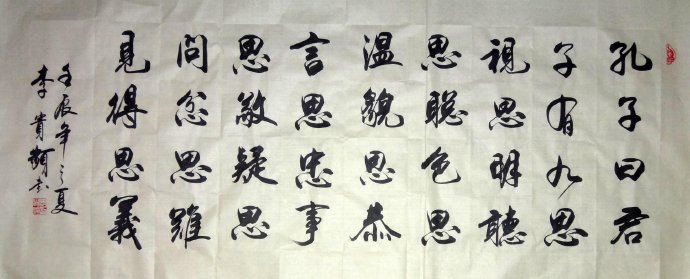 孔子曰君
子有九思
視思明聽
思聰色思
温貌思恭
言思忠事
思敬疑思
問忿思難
見得思義
壬辰年之夏
李貴书